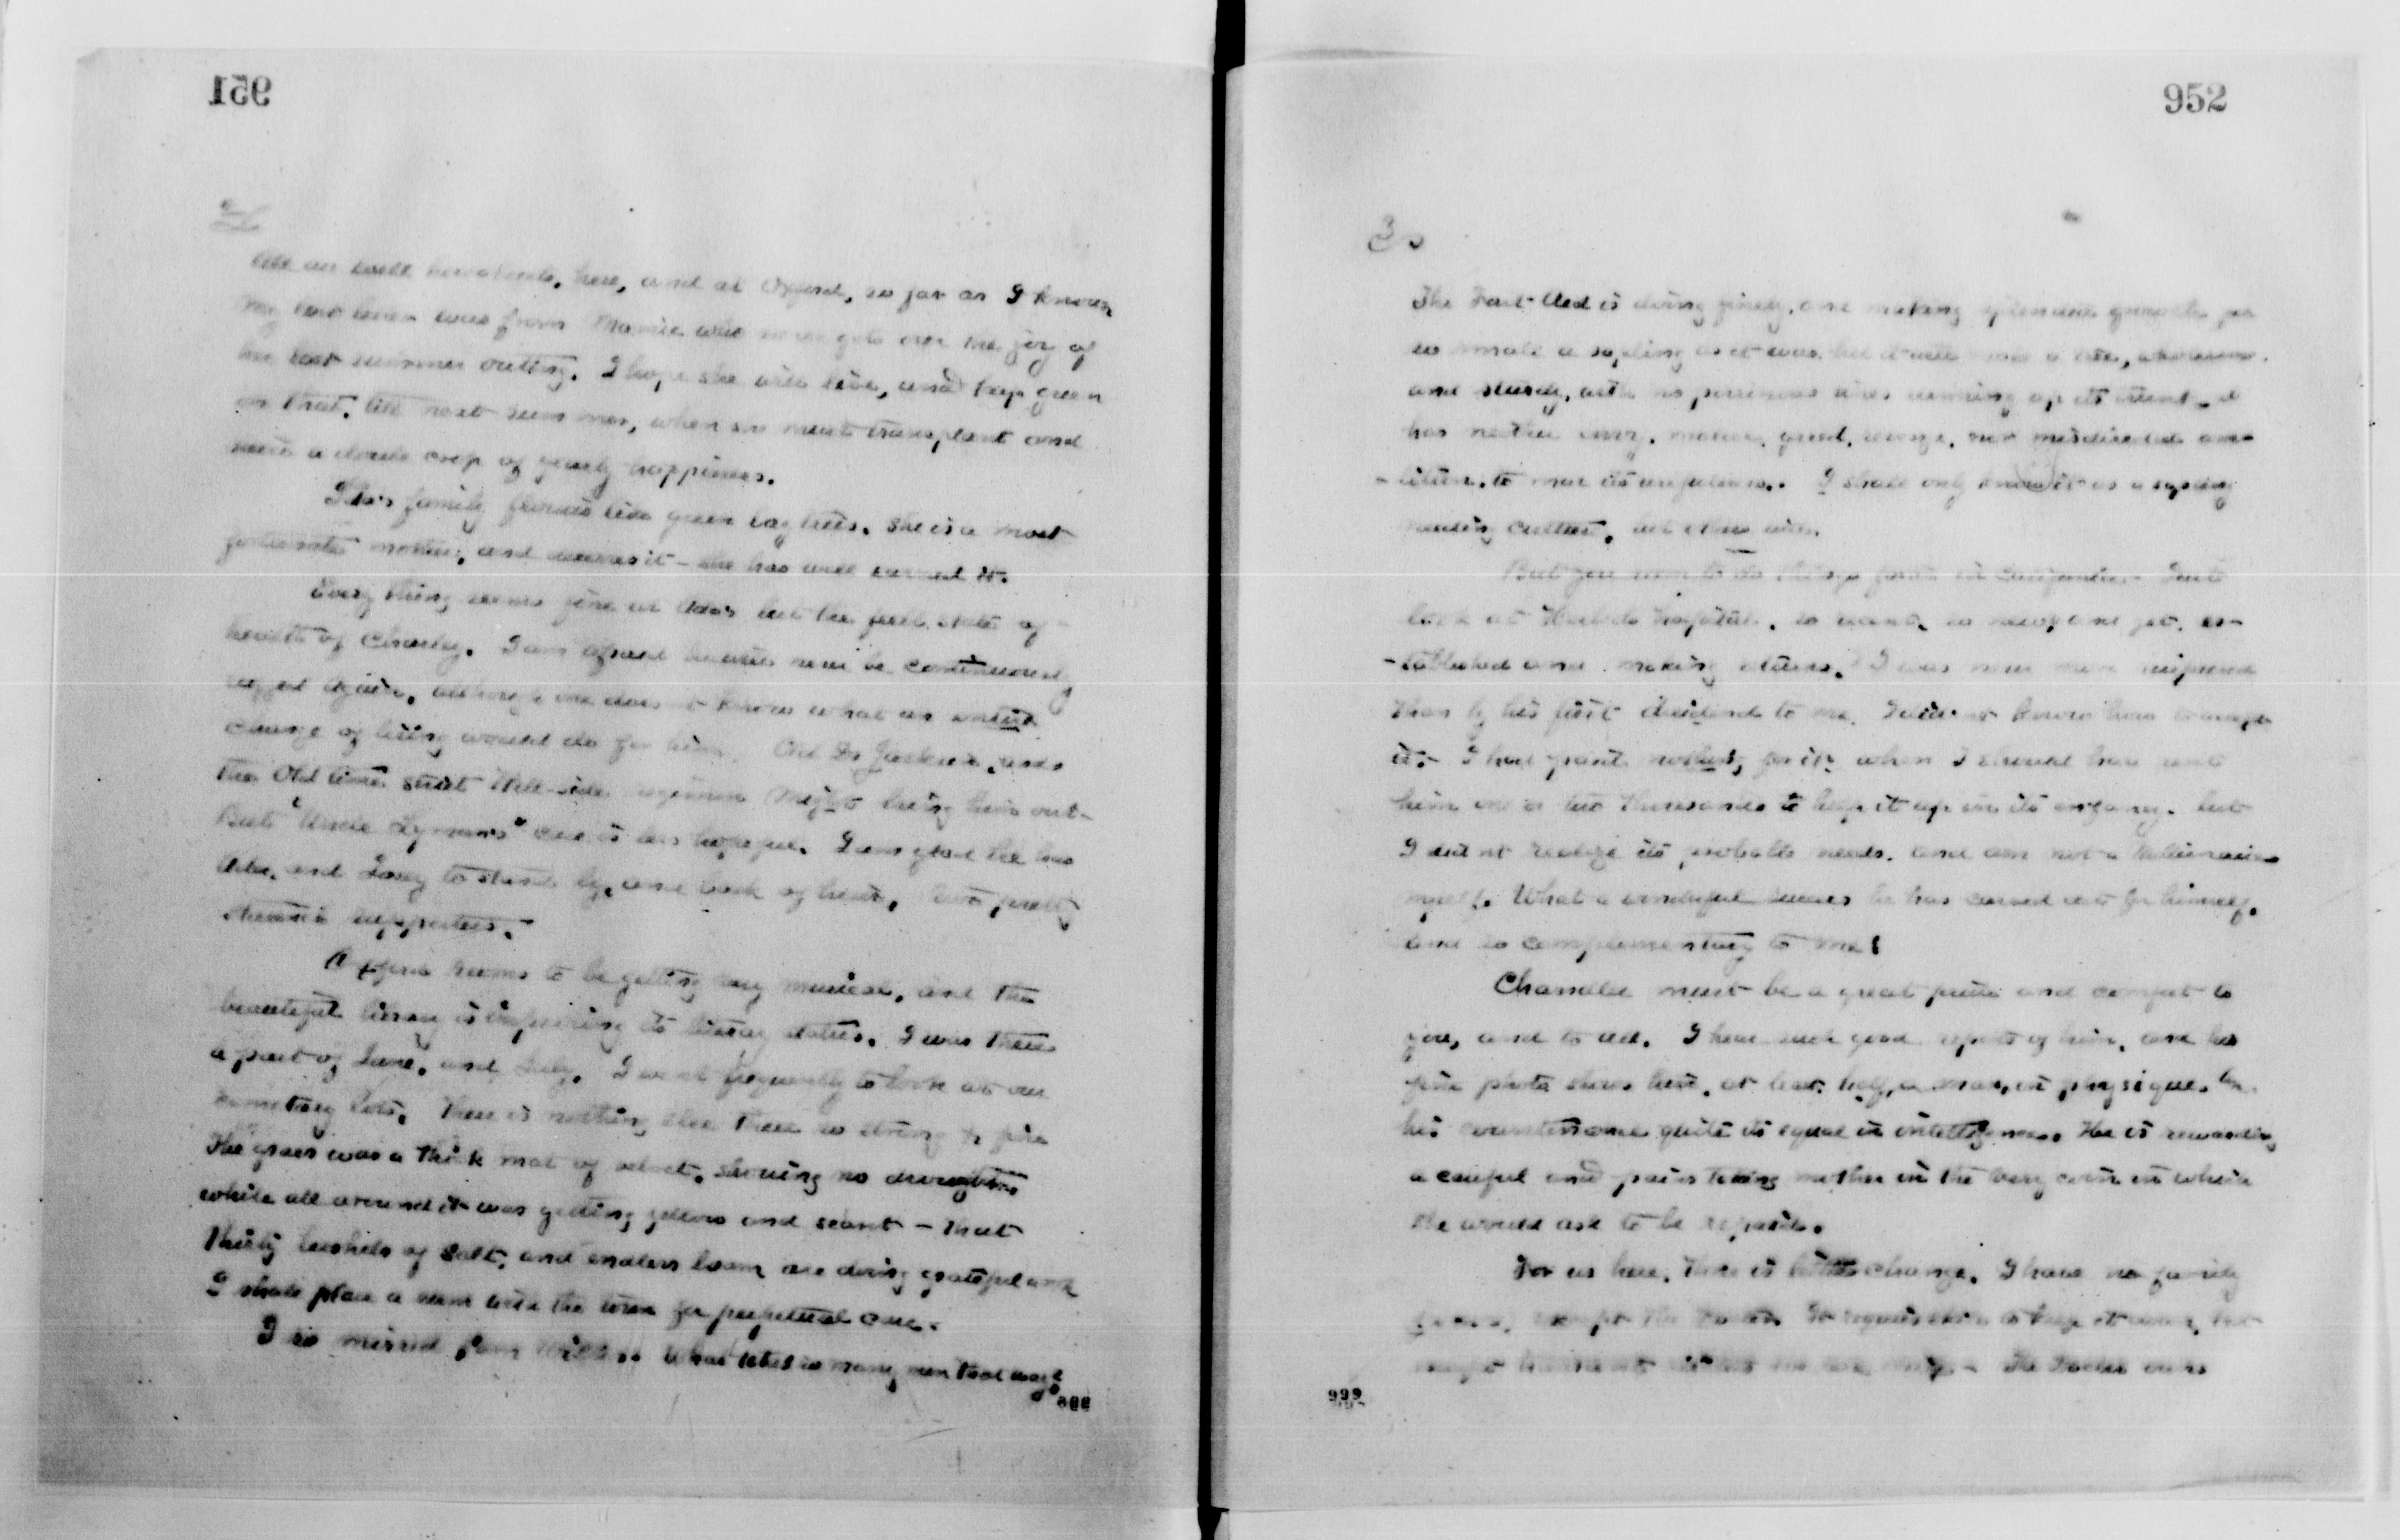 951
2
All are well hereabouts, here, and at Oxford, so far as I know,
My last letter was from Mamie who never gets over the joy of
her last summer outing. I hope she will live, and keep green
on that, till next summer, when we must transplant and
raise a double crop of yearly happiness.
Ida's family flourish like green bay trees. She is a most
fortunate mother, and deserves it - she has well earned it.
Every thing seems fine at Ada's but the feeble state of
health of Charley. I am afraid he will never be continuously
rugged again, although one does not know what an entire
change of living would do for him. Old Dr Jackson, and
the Old time strict Hill-side regimen might bring him out-
But "Uncle Lyman's" case is less hopeful. I am glad he has
and to stand by, and back of him, two pretty
staunch supporters.
Oxford seems to be getting very musical, and the
beautiful library is inspiring its literary status. I was there
a part of June, and July. I went frequently to look at our
cemetery lots. There is nothing else there so strong & fine
The grass was a thick mat of velvet, showing no drought,
while all around it was getting yellow and scant - that
thirty bushels of salt, and endless loam are doing grateful work
I shall place a sum with the town for perpetual care.
I so missed from What takes so many men that way?
952
3
The is doing finely, and making splendid growth for
so small a sapling as it was, but it will make a tree, wholesome
and sturdy, with no pernicious vines running up its trunk - it
has neither envy, malice, greed, revenge, nor misdirected am-
-bition, to mar its usefulness. I shall only know it as a sapling
needing culture, but others will.
But you seem to do things fast in Just
look at hospital, so recent, so new, and yet, es-
-tablished and making returns. I was never more surprised
than by his first dividend to me. I did not know how to accept
it - I had paid nothing for it, when I should have sent
him one or two thousands to help it up in its infancy - but
I did not realize its probable needs, and am not a Millionaire
myself. What a wonderful success he has carved out for himself,
and so complimentary to me!
Chandler must be a great pride and comfort to
you, and to all. I hear such good reports of him, and his
fine photo shows him, at least, half, a man, in physique,
his countenance quite its equal in intelligence. He is rewarding
a careful and pains taking mother in the very coin in which
she would ask to be repaid.
For us here, there is little change. I have no family
except the Doctor. to keep it
- The Doctor owns
999